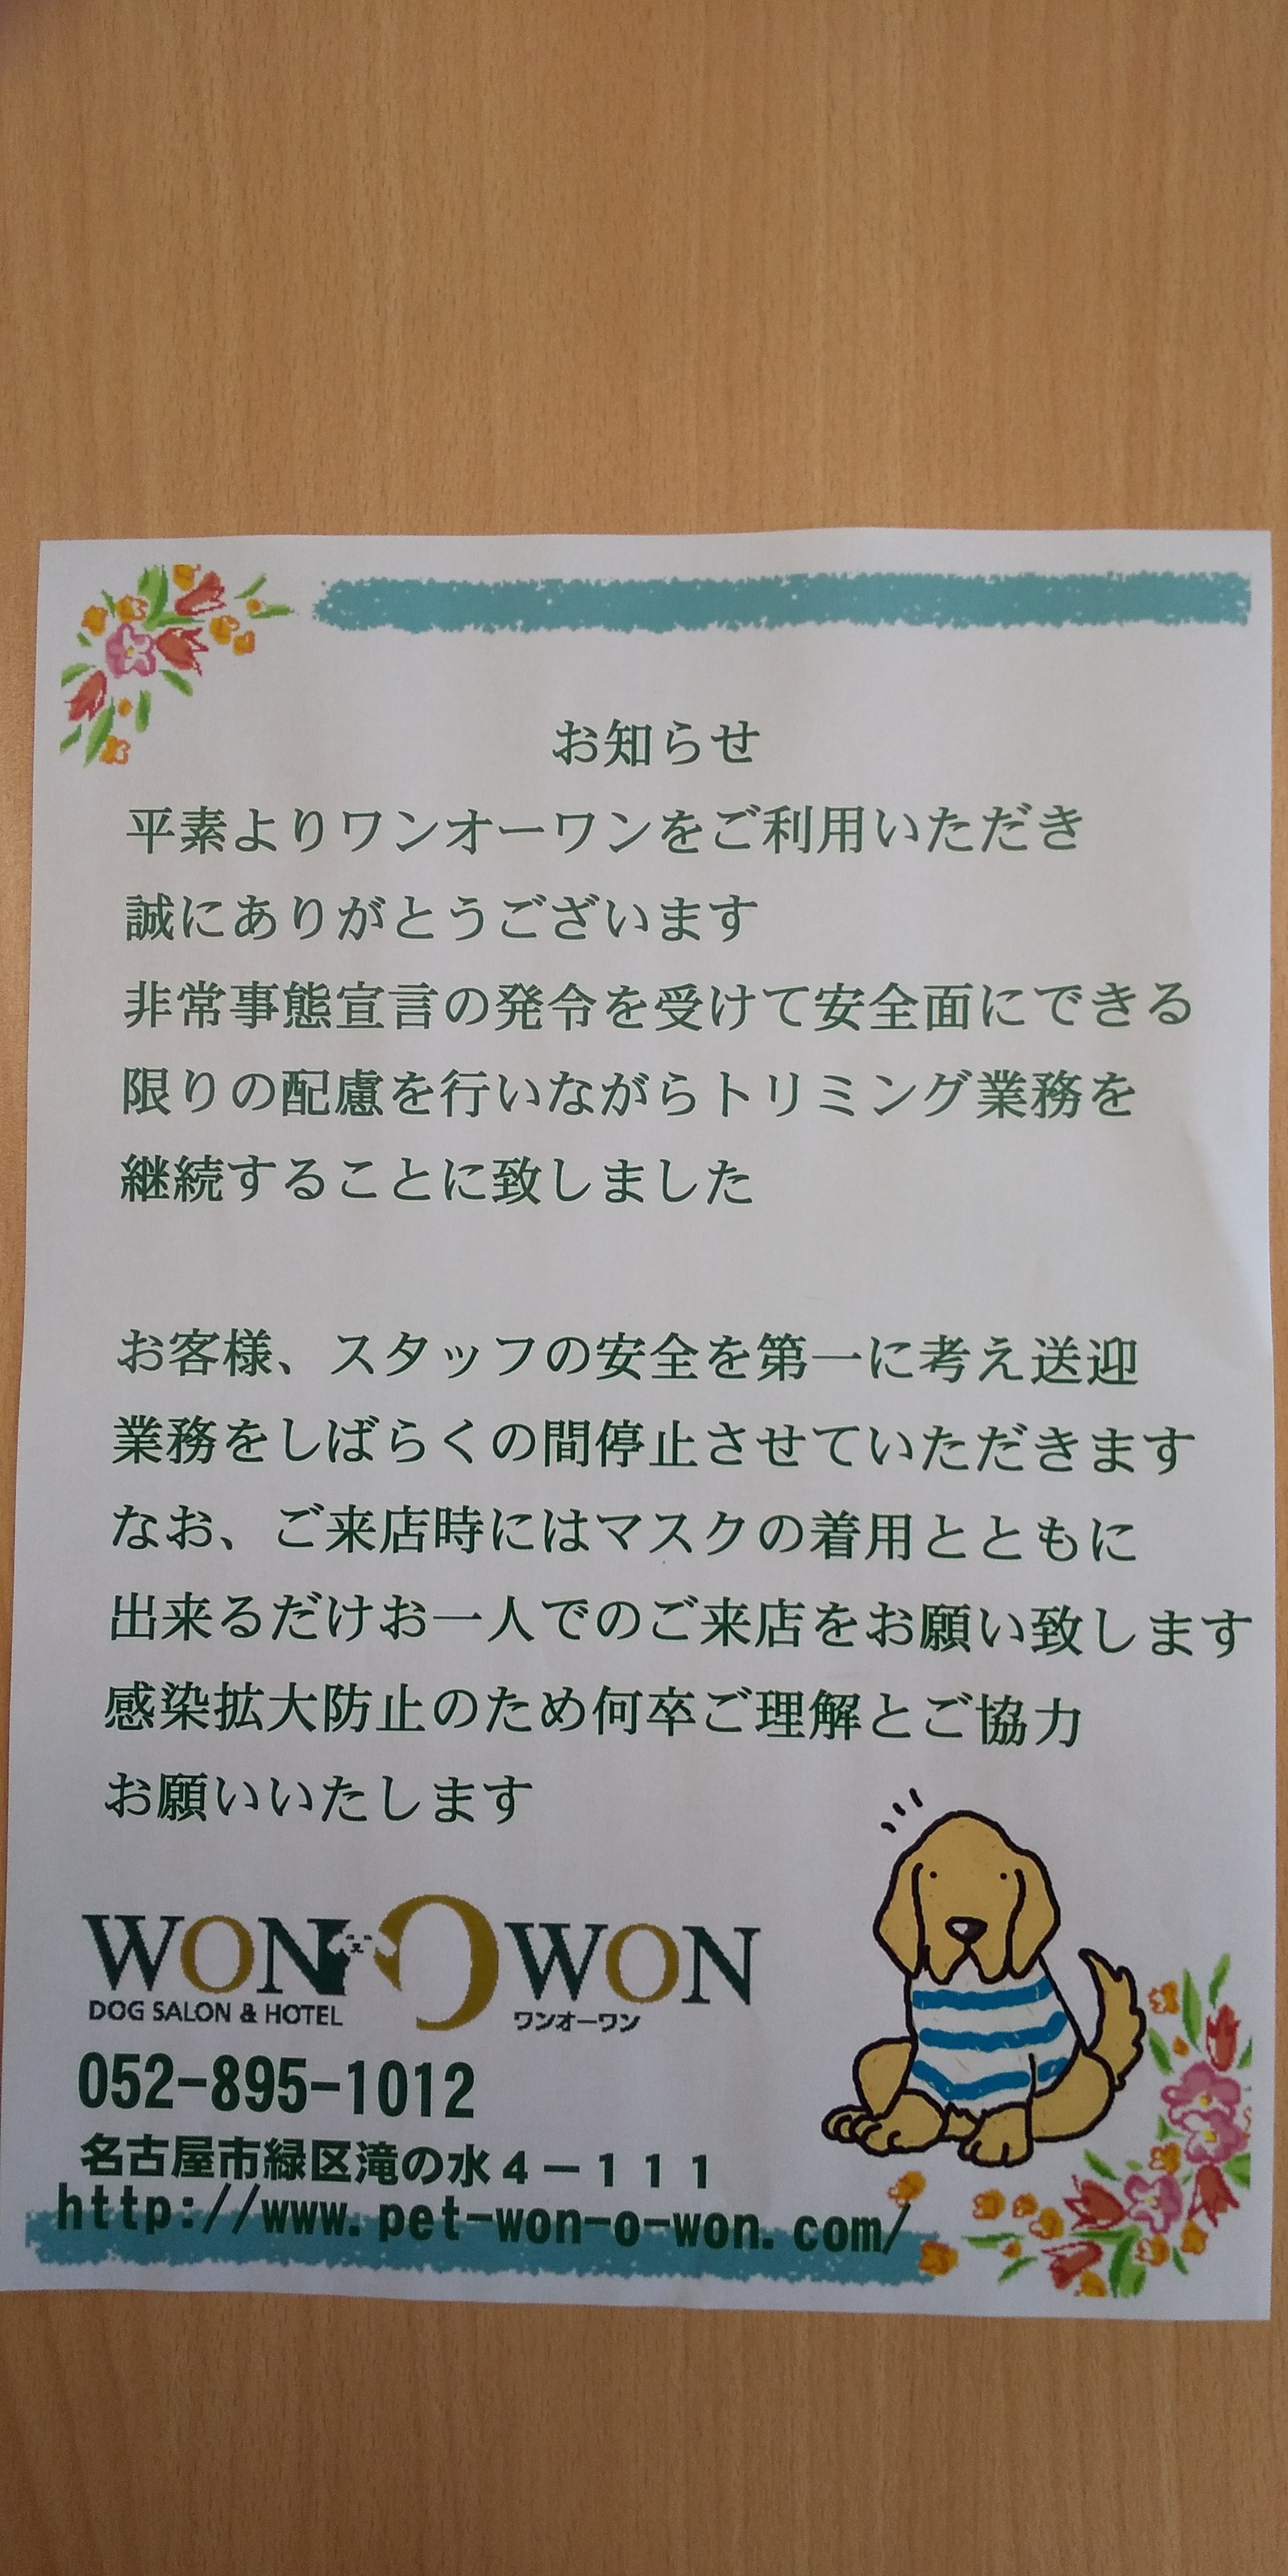 お知らせ
平素よりワンオーワンをご利用いただき
誠にありがとうございます
非常事態宣言の発令を受けて安全面にできる
限りの配慮を行いながらトリミング業務を
継続することに致しました
お客様、スタッフの安全を第一に考え送迎
業務をしばらくの間停止させていただきます
なお、ご来店時にはマスクの着用とともに
出来るだけお一人でのご来店をお願い致します
感染拡大防止のため何卒ご理解とご協力
お願いいたします
WON O WON
DOG SALON & HOTEL ワンオーワン
052-895-1012
名古屋市緑区滝の水４－１１１
http://www.pet-won-o-won.com/